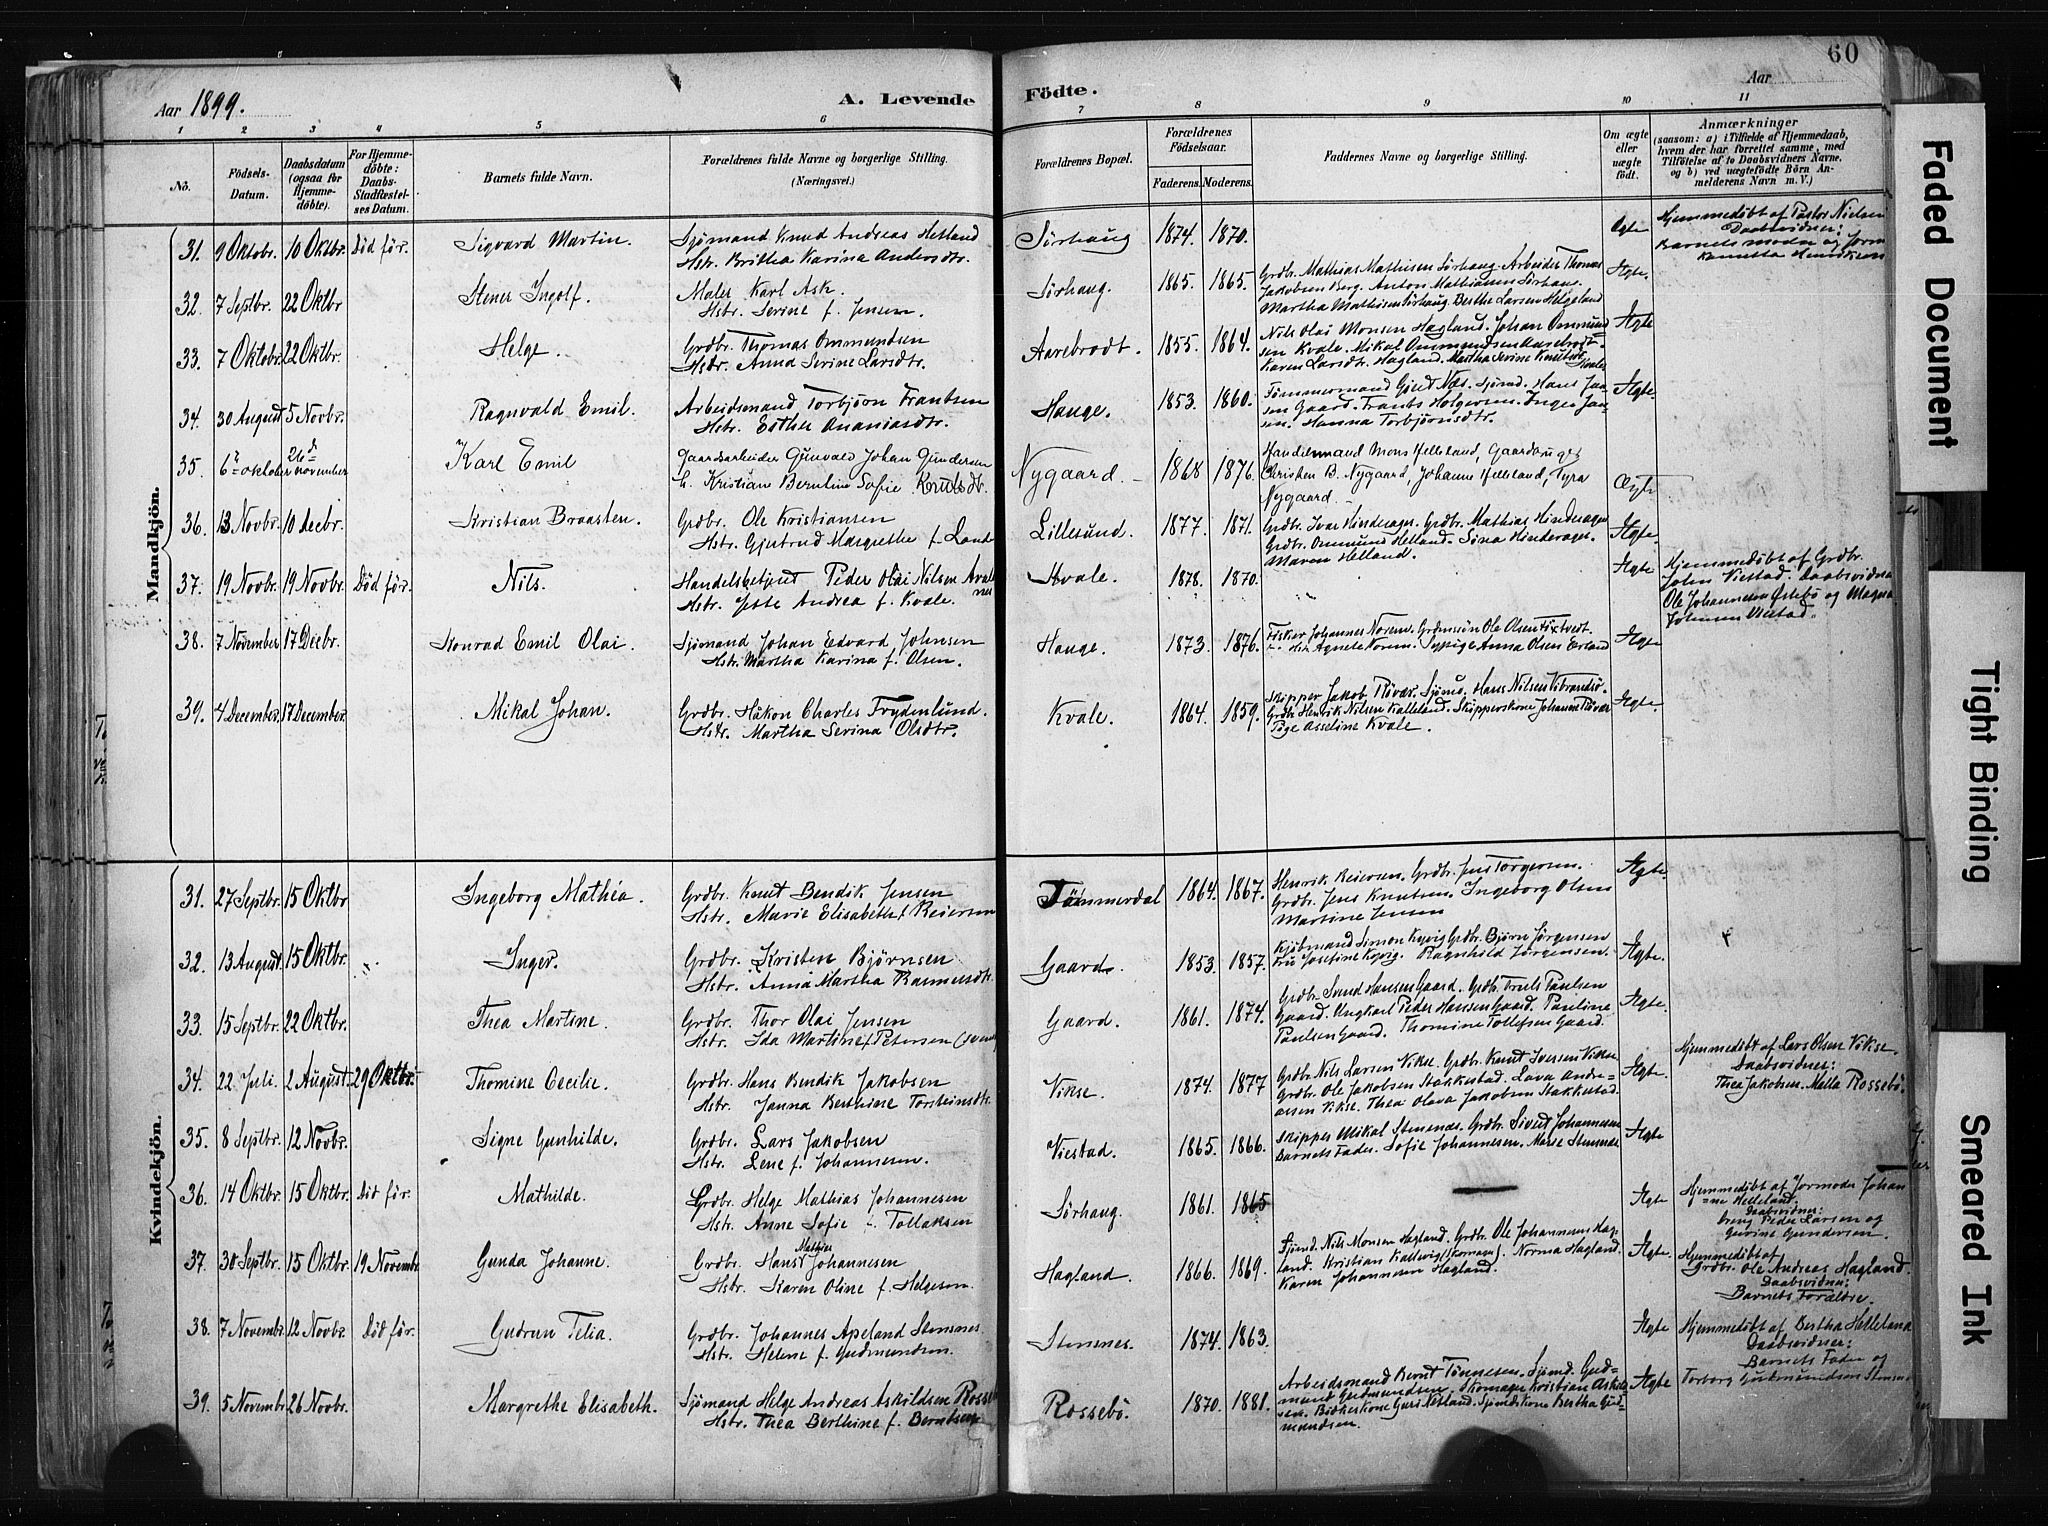 60
Aar 1899.
A. Levende Födte.
Aar
1 2 3 4 5 6 7 8 9 10 11
No.
Födsels-Datum.
Daabsdatum (ogsaa for Hjemme-döbte).
For Hjemme-döbte: Daabs-Stadfæstel-ses Datum.
Barnets fulde Navn.
Forældrenes fulde Navne og borgerlige Stilling.
(Næringsvei.)
Forældrenes Bopæl.
Forældrenes Födselsaar.
Faderens. Moderens.
Faddernes Navne og borgerlige Stilling.
Om ægte eller uægte födt.
Anmærkninger
(saasom: a) i Tilfælde af Hjemmedaab, hvem der har forrettet samme, med Tilföielse af to Daabsvidners Navne. og b) ved uægtefödte Börn Anmelderens Navn m. V.)
Mandkjön.
31. 9 Oktobr. 10 Oktbr. Död før. Sigvard Martin. Sjømand Knud Andreas Helland
Hstr. Britha Karina Andersdtr.
Sørhaug 1874. 1870. Ægte
Hjemmedöbt af Pastor Nielsen
Daabsvidner:
Barnets moder og Jorm
Henriksen
32. 7 Septbr. 22 Oktbr Stener Ingolf. Maler Karl Ask.
Hstr. Serine f. Jensen.
Sørhaug. 1865. 1865. Grdbr. Mathias Mathisen Sørhaug. Arbeider Thomas
Jakobsen Berg. Anton Mathiasen Sørhaug.
Martha Mathisen Sørhaug. Berthe Larsen Helgeland
Ægte.
33. 7 Oktobr. 22 Oktbr. Helge. Grdbr. Thomas Ommundsen
Hstr. Anna Serine Larsdtr.
Aarebrodt. 1855. 1864. Nils Olai Monsen Hagland. Johan Ommund
sen Kvale. Mikal Ommundsen Aarebrodt.
Karen Larsdtr. Hagland. Martha Serine Knutsdtr Kvale
Ægte
34. 30 August 5 Novbr. Ragnvald Emil. Arbeidsmand Torbjørn Frantsen
Hstr. Esther Ananiasdtr.
Hauge. 1853. 1860. Tømmermand Gjert Næs. Sjømd. Hans Jaa
sen Gaard. Frants Holgersen. Inger Jan
sen. Hanna Torbjørnsdtr.
Ægte.
35. 6te oktober 26de november Karl Emil Gaardsarbeider Gunvald Johan Gundersen
h. Kristiane Bernline Sofie Knutsdtr.
Nygaard. 1868 1876. Handelsmand Mons Helleland, Gaardbruger
Christen B. Nygaard, Johanne Helleland, Tyra
Nygaard.
Ægte
36. 13 Novbr. 10 decbr. Kristian Braasten. Grdbr. Ole Kristiansen
Hstr. Gjertrud Margrethe f. Lande
Lillesund. 1877. 1871. Grdbr. Ivar Hinderager. Grdbr. Mathias Hinderager
Grdbr. Ommund Helland. Sina Hinderager.
Maren Helland.
Ægte.
37. 19 Novbr. 19 Novbr. Död før. Nils. Handelsbetjent Peder Olai Nilsen Avalsnes
Hstr. Jette Andrea f. Kvale.
Kvale. 1878. 1870. Ægte
Hjemmedöbt af Grdbr.
John Viestad. Daabsvidne
Ole Johannesen Østebø og Magna
Johnsen Viestad.
38. 7 November 17 Decbr. Konrad Emil Olai. Sjømand Johan Edvard Johnsen
Hstr. Martha Karina f. Olsen.
Hauge. 1873. 1876. Fisker Johannes Norem. Grdmsøn Ole Olsen Tøxtvedt.
Hstr. Agnete Norem. Sypige Anna Olsen Erland
Ægte
39. 4 December. 17 December. Mikal Johan. Grdbr. Håkon Charles Frydenlund.
Hstr. Martha Serina Olsdtr.
Kvale. 1864. 1859. Skipper Jakob Røvær. Sjømd. Hans Nilsen Vibrandsö.
Grdbr. Henrik Nilsen Kalleland. Skipperskone Johanne Røvær
Pige Asseline Kvale.
Ægte.
Kvindekjön.
31. 27 Septbr. 15 Oktbr Ingeborg Mathea. Grdbr. Knut Bendik Jensen
Hstr. Marie Elisabeth f. Reiersen
Tömmerdal 1864. 1867. Henrik Reiersen. Grdbr. Jens Torgersen.
Grdbr. Jens Knutsen. Ingeborg Olsen
Martine Jensen
Ægte.
32. 13 August. 15 Oktbr. Inger. Grdbr. Kristen Bjørnsen
Hstr. Anna Martha Rasmusdtr.
Gaard. 1853. 1857. Kjøbmand Simon Kyvig. Grdbr. Bjørn Jørgensen
Fru Josefine Kyvig. Ragnhild Jørgensen.
Ægte.
33. 15 Septbr. 22 Oktbr. Thea Martine. Grdbr. Thor Olai Jensen
Hstr. Ida Martine f. Petersen
Gaard. 1861. 1874. Grdbr. Svend Hansen Gaard. Grdbr. Truls Paulsen
Gaard. Ungkarl Peder Hansen Gaard. Pauline
Paulsen Gaard. Thomine Tollefsen Gaard.
Ægte.
34. 22 Juli. 2 August. 29 Oktbr. Thomine Cecilie. Grdbr. Hans Bendik Jakobsen
Hstr. Janna Berthine Torsteinsdtr.
Vikse. 1874. 1877 Grdbr. Nils Larsen Vikse. Grdbr. Knut Iversen Vikse.
Grdbr. Ole Jakobsen Stakkestad. Lava Andre-
asen Vikse. Thea Olava Jakobsen Stakkestad.
Ægte.
Hjemmedöbt af Lars Olsen Vikse.
Daabsvidner:
Thea Jakobsen. Malla Rossebö.
35. 8 Septbr. 12 Novbr. Signe Gunhilde. Grdbr. Lars Jakobsen
Hstr. Lene f. Johannesen.
Viestad. 1865. 1866. Skipper Mikal Stensnes. Grdbr. Sivert Johannesen
Barnets Fader. Sofie Johannesen. Marie Stensnes
Ægte
36. 14 Oktbr. 15 Oktbr. Död før. Mathilde. Grdbr. Helge Mathias Johannesen
Hstr. Anne Sofie - Tollaksen
Sørhaug. 1861. 1865 Ægte
Hjemmedöbt af Jormoder Johan
=ne Helleland.
Daabsvidner:
Peder Larsen og
Gurine Gundersen.
37. 30 Septbr. 15 Oktbr. 19 Novembr Gunda Johanne. Grdbr. Hans Mathias Johannesen
Hstr. Karen Oline f. Helgesen.
Hagland. 1866. 1869. Sjømd. Nils Monsen Hagland. Grdbr. Ole Johannesen Hag-
land. Kristian Kallevig (Skomager). Norma Hagland.
Karen Johannesen Hagland.
Ægte.
Hjemmedöbt af
Grdbr. Ole Andreas Hagland.
Daabsvidner:
Barnets Forældre.
38. 7 Novembr. 12 Novbr. Död før. Gudrun Telia. Grdbr. Johannes Apeland Stensnes.
Hstr. Helene f. Gudmundsen.
Stensnes. 1874. 1863. Ægte
Hjemmedöbt af Bertha Helleland
Daabsvidner:
Barnets Fader og
Torborg Gudmundsen Stensnes
39. 5 Novembr 26 Novbr. Margrethe Elisabeth. Sjømand Helge Andreas Askildsen Rossebö
Hstr. Thea Berthine f. Berntsen
Rossebö. 1870. 1881. Arbeidsmand Bernt Tønnesen. Sjømd. Gud=
mund Gudmundsen. Skomager Kristian Askild
sen. Bödkerkone Guri Netland. Sjømdskone Bertha Gud
mundsen.
Ægte
Faded Document
Tight Binding
Smeared Ink